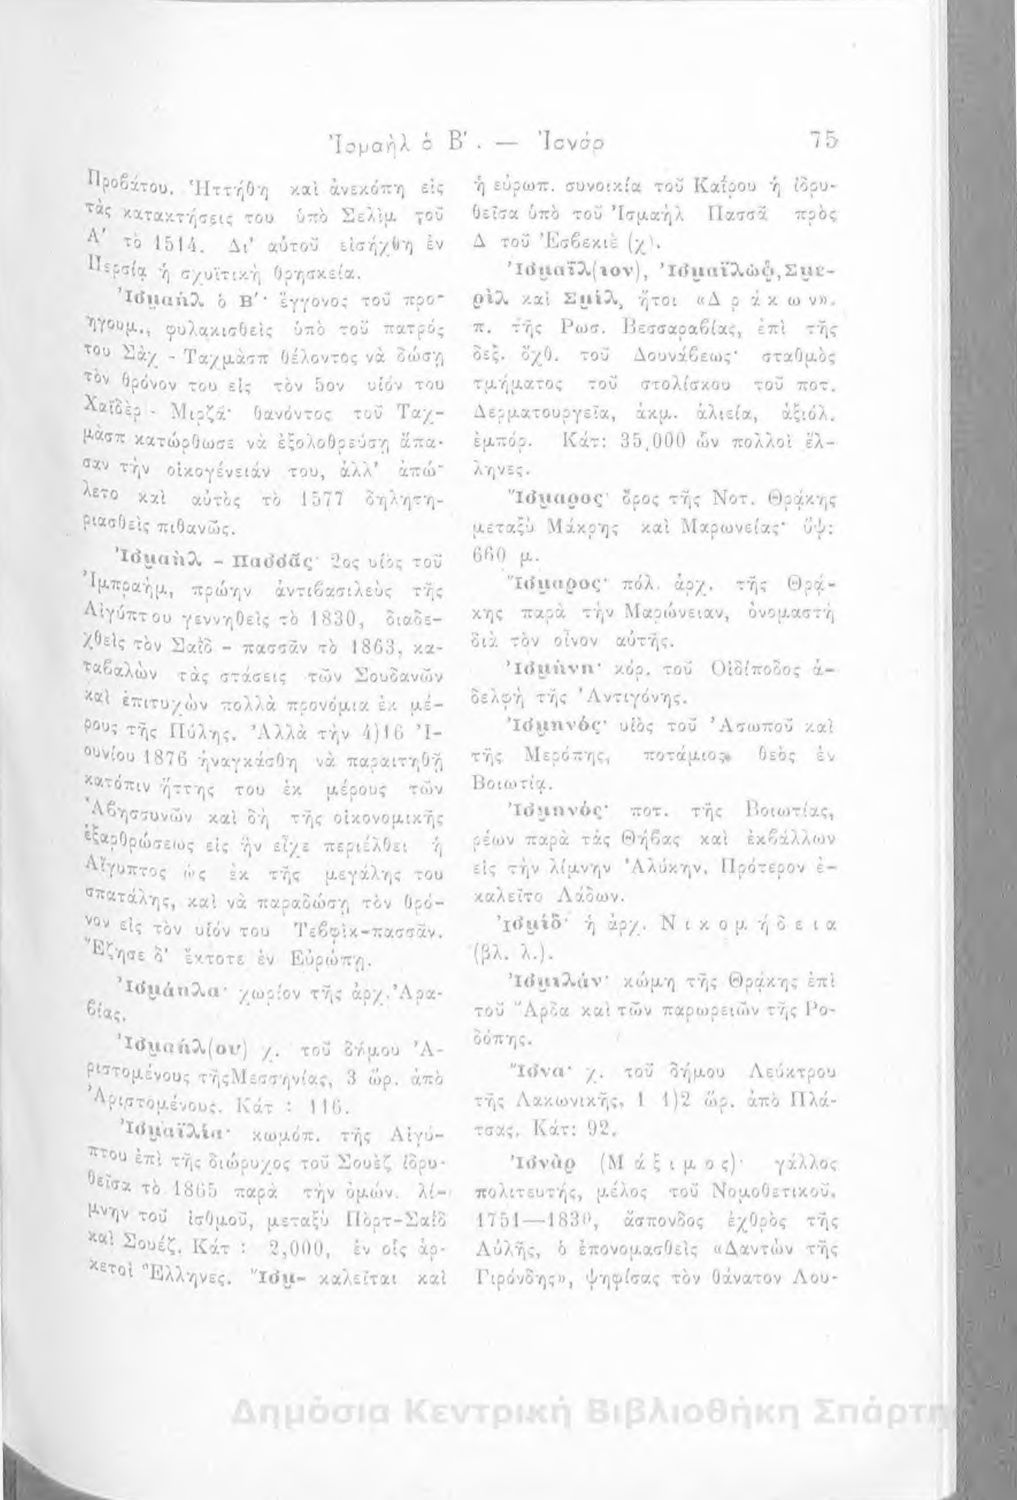 Ἰσμαὴλ ὁ Β'. — Ἰσνάρ 75
Προβάτου. Ἡττήθη καὶ ἀνεκόπη εἰς
τὰς κατακτήσεις του ὑπὸ Σελὶμ τοῦ
Α' τὸ 1514. Δι' αὐτοῦ εἰσήχθη ἐν
Περσίᾳ ἡ σχυϊτικὴ θρησκεία.
Ἰσμαὴλ ὁ Β'· ἔγγονος τοῦ προ-
ηγουμ., φυλακισθεὶς ὑπὸ τοῦ πατρός
του Σὰχ - Ταχμὰσπ θέλοντος νὰ δώσῃ
τὸν θρόνον του εἰς τὸν 5ον υἱόν του
Χαϊδὲρ - Μιρζᾶ· θανόντος τοῦ Ταχ-
μὰσπ κατώρθωσε νὰ ἐξολοθρεύσῃ ἅπα-
σαν τὴν οἰκογένειάν του, ἀλλ' ἀπώ-
λετο καὶ αὐτὸς τὸ 1577 δηλητη-
ριασθεὶς πιθανῶς.
Ἰσμαὴλ - Πασσᾶς· 2ος υἱὸς τοῦ
Ἰμπραὴμ, πρώην ἀντιβασιλεὺς τῆς
Αἰγύπτου γεννηθεὶς τὸ 1830, διαδε-
χθεὶς τὸν Σαῒδ - πασσᾶν τὸ 1863, κα-
ταβαλὼν τὰς στάσεις τῶν Σουδανῶν
καὶ ἐπιτυχὼν πολλὰ προνόμια ἐκ μέ-
ρους τῆς Πύλης. Ἀλλὰ τὴν 4)16 Ἰ-
ουνίου 1876 ἠναγκάσθη νὰ παραιτηθῇ
κατόπιν ἥττης του ἐκ μέρους τῶν
Ἀβησσυνῶν καὶ δὴ τῆς οἰκονομικῆς
ἐξαρθρώσεως εἰς ἣν εἶχε περιέλθει ἡ
Αἴγυπτος ὡς ἐκ τῆς μεγάλης του
σπατάλης, καὶ νὰ παραδώσῃ τὸν θρό-
νον εἰς τὸν υἱόν του Τεβφὶκ-πασσᾶν.
Ἔζησε δ' ἔκτοτε ἐν Εὐρώπῃ.
Ἰσμάηλα· χωρίον τῆς ἀρχ. Ἀρα-
βίας.
Ἰσμαήλ(ου) χ. τοῦ δήμου Ἀ-
ριστομένους τῆς Μεσσηνίας, 3 ὡρ. ἀπὸ
Ἀριστομένους. Κάτ : 116.
Ἰσμαϊλία· κωμόπ. τῆς Αἰγύ-
πτου ἐπὶ τῆς διώρυχος τοῦ Σουὲζ ἱδρυ-
θεῖσα τὸ 1865 παρὰ τὴν ὁμών. λί-
μνην τοῦ ἰσθμοῦ, μεταξὺ Πὸρτ-Σαῒδ
καὶ Σουέζ. Κάτ : 2,000, ἐν οἷς ἀρ-
κετοὶ Ἕλληνες. Ἴσμ- καλεῖται καὶ
ἡ εὐρωπ. συνοικία τοῦ Καΐρου ἡ ἱδρυ-
θεῖσα ὑπὸ τοῦ Ἰσμαὴλ Πασσᾶ πρὸς
Δ τοῦ Ἐσβεκιὲ (χ).
Ἰσμαΐλ(ιον), Ἰσμαϊλώφ, Σμε-
ρὶλ καὶ Σμίλ, ἤτοι «Δράκων».
π. τῆς Ρωσ. Βεσσαραβίας, ἐπὶ τῆς
δεξ. ὄχθ. τοῦ Δουνάβεως· σταθμὸς
τμήματος τοῦ στολίσκου τοῦ ποτ.
Δερματουργεῖα, ἀκμ. ἁλιεία, ἀξιόλ.
ἐμπόρ. Κάτ: 35,000 ὧν πολλοὶ ἕλ-
ληνες.
Ἴσμαρος· ὄρος τῆς Νοτ. Θρᾴκης
μεταξὺ Μάκρης καὶ Μαρωνείας· ὕψ:
660 μ.
Ἴσμαρος· πόλ. ἀρχ. τῆς Θρᾴ-
κης παρὰ τὴν Μαρώνειαν, ὀνομαστὴ
διὰ τὸν οἶνον αὐτῆς.
Ἰσμήνη· κόρ. τοῦ Οἰδίποδος ἀ-
δελφὴ τῆς Ἀντιγόνης.
Ἰσμηνός· υἱὸς τοῦ Ἀσωποῦ καὶ
τῆς Μερόπης, ποτάμιος θεὸς ἐν
Βοιωτίᾳ.
Ἰσμηνός· ποτ. τῆς Βοιωτίας,
ῥέων παρὰ τὰς Θήβας καὶ ἐκβάλλων
εἰς τὴν λίμνην Ἀλύκην. Πρότερον ἐ-
καλεῖτο Λάδων.
Ἰσμίδ· ἡ ἀρχ. Νικομήδεια
(βλ. λ.).
Ἰσμιλάν· κώμη τῆς Θρᾴκης ἐπὶ
τοῦ Ἄρδα καὶ τῶν παρωρειῶν τῆς Ρο-
δόπης.
Ἴσνα· χ. τοῦ δήμου Λεύκτρου
τῆς Λακωνικῆς, 1 1)2 ὥρ. ἀπὸ Πλά-
τσας. Κάτ: 92.
Ἰσνὰρ (Μάξιμος)· γάλλος
πολιτευτής, μέλος τοῦ Νομοθετικοῦ.
1751—1830, ἄσπονδος ἐχθρὸς τῆς
Αὐλῆς, ὁ ἐπονομασθεὶς «Δαντὼν τῆς
Γιρόνδης», ψηφίσας τὸν θάνατον Λου-
Δημόσια Κεντρική Βιβλιοθήκη Σπάρτη